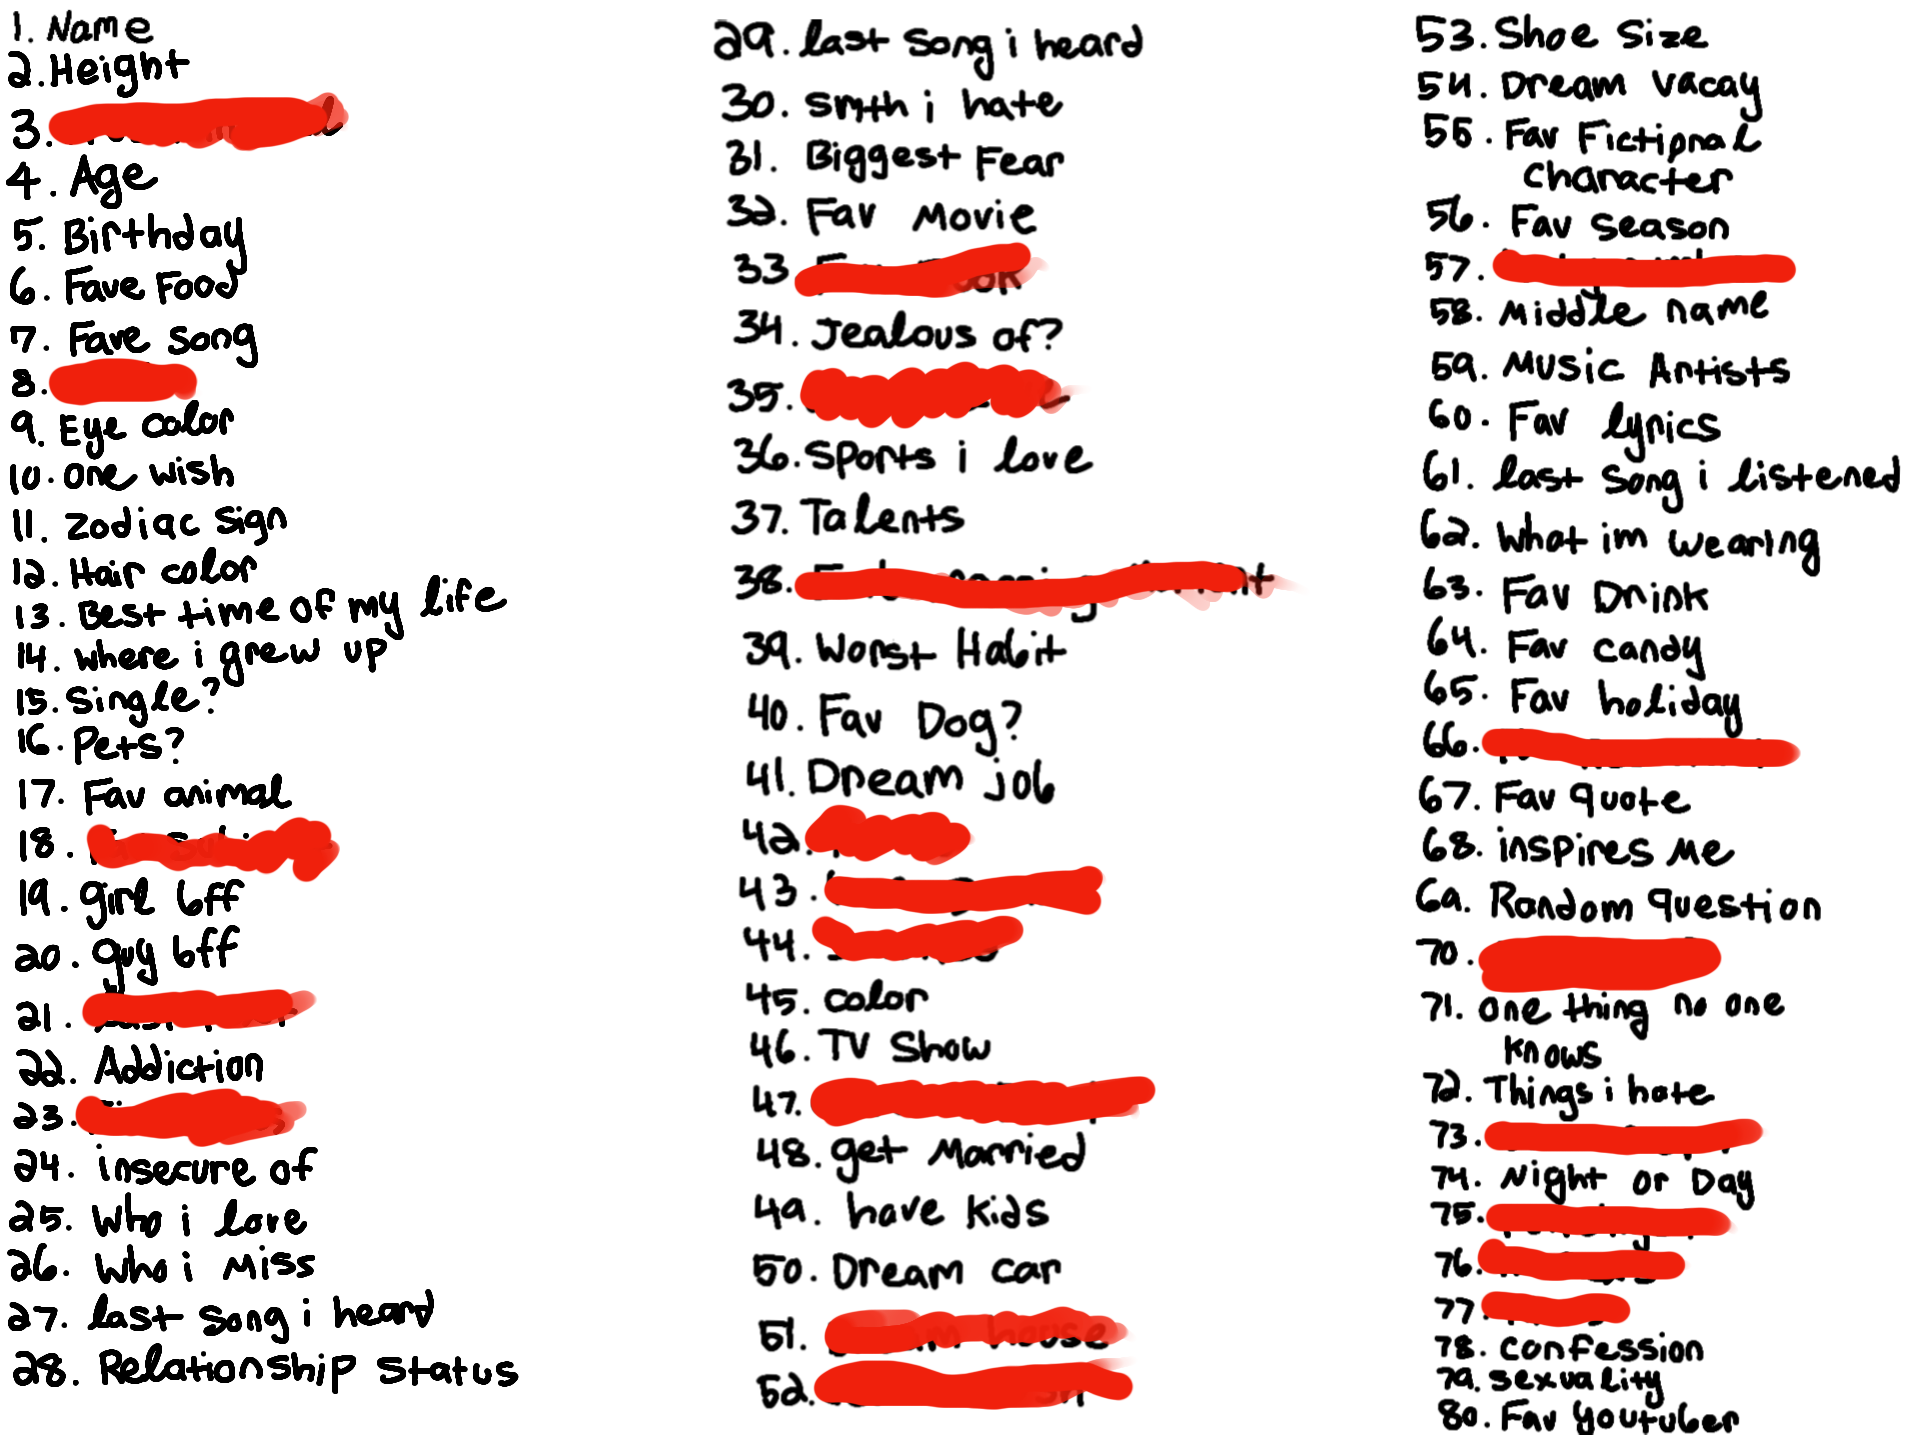 1. Name
2. Height
3.
4. Age
5. Birthday
6. Fave Food
7. Fave song
8.
9. Eye color
10. one wish
11. zodiac sign
12. Hair color
13. Best time of my life
14. where i grew up
15. single?
16. Pets?
17. Fav animal
18.
19. girl bff
20. guy bff
21.
22. Addiction
23.
24. insecure of
25. Who i love
26. Who i miss
27. last song i heard
28. Relationship status
29. last song i heard
30. smth i hate
31. Biggest Fear
32. Fav Movie
33
34. Jealous of?
35.
36. Sports i love
37. Talents
38.
39. Worst Habit
40. Fav Dog?
41. Dream job
42.
43.
44.
45. color
46. TV Show
47.
48. get Married
49. have kids
50. Dream car
51. house
52.
53. Shoe Size
54. Dream vacay
55. Fav Fictional
character
56. Fav season
57.
58. Middle name
59. Music Artists
60. Fav lyrics
61. last song i listened
62. What im wearing
63. Fav Drink
64. Fav candy
65. Fav holiday
66.
67. Fav quote
68. inspires me
69. Random question
70.
71. one thing no one
knows
72. Things i hate
73.
74. Night or Day
75.
76.
77
78. confession
79. sexuality
80. Fav youtuber